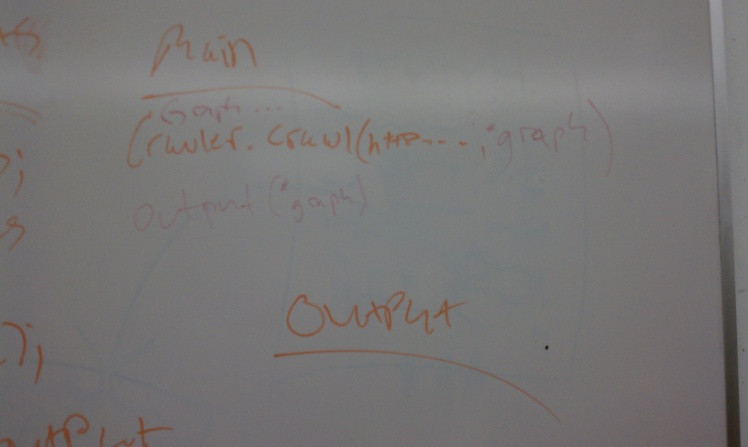 Main
Graph ...
Crawler.crawl(http...., *graph)
Output (*graph)
OutPut
);